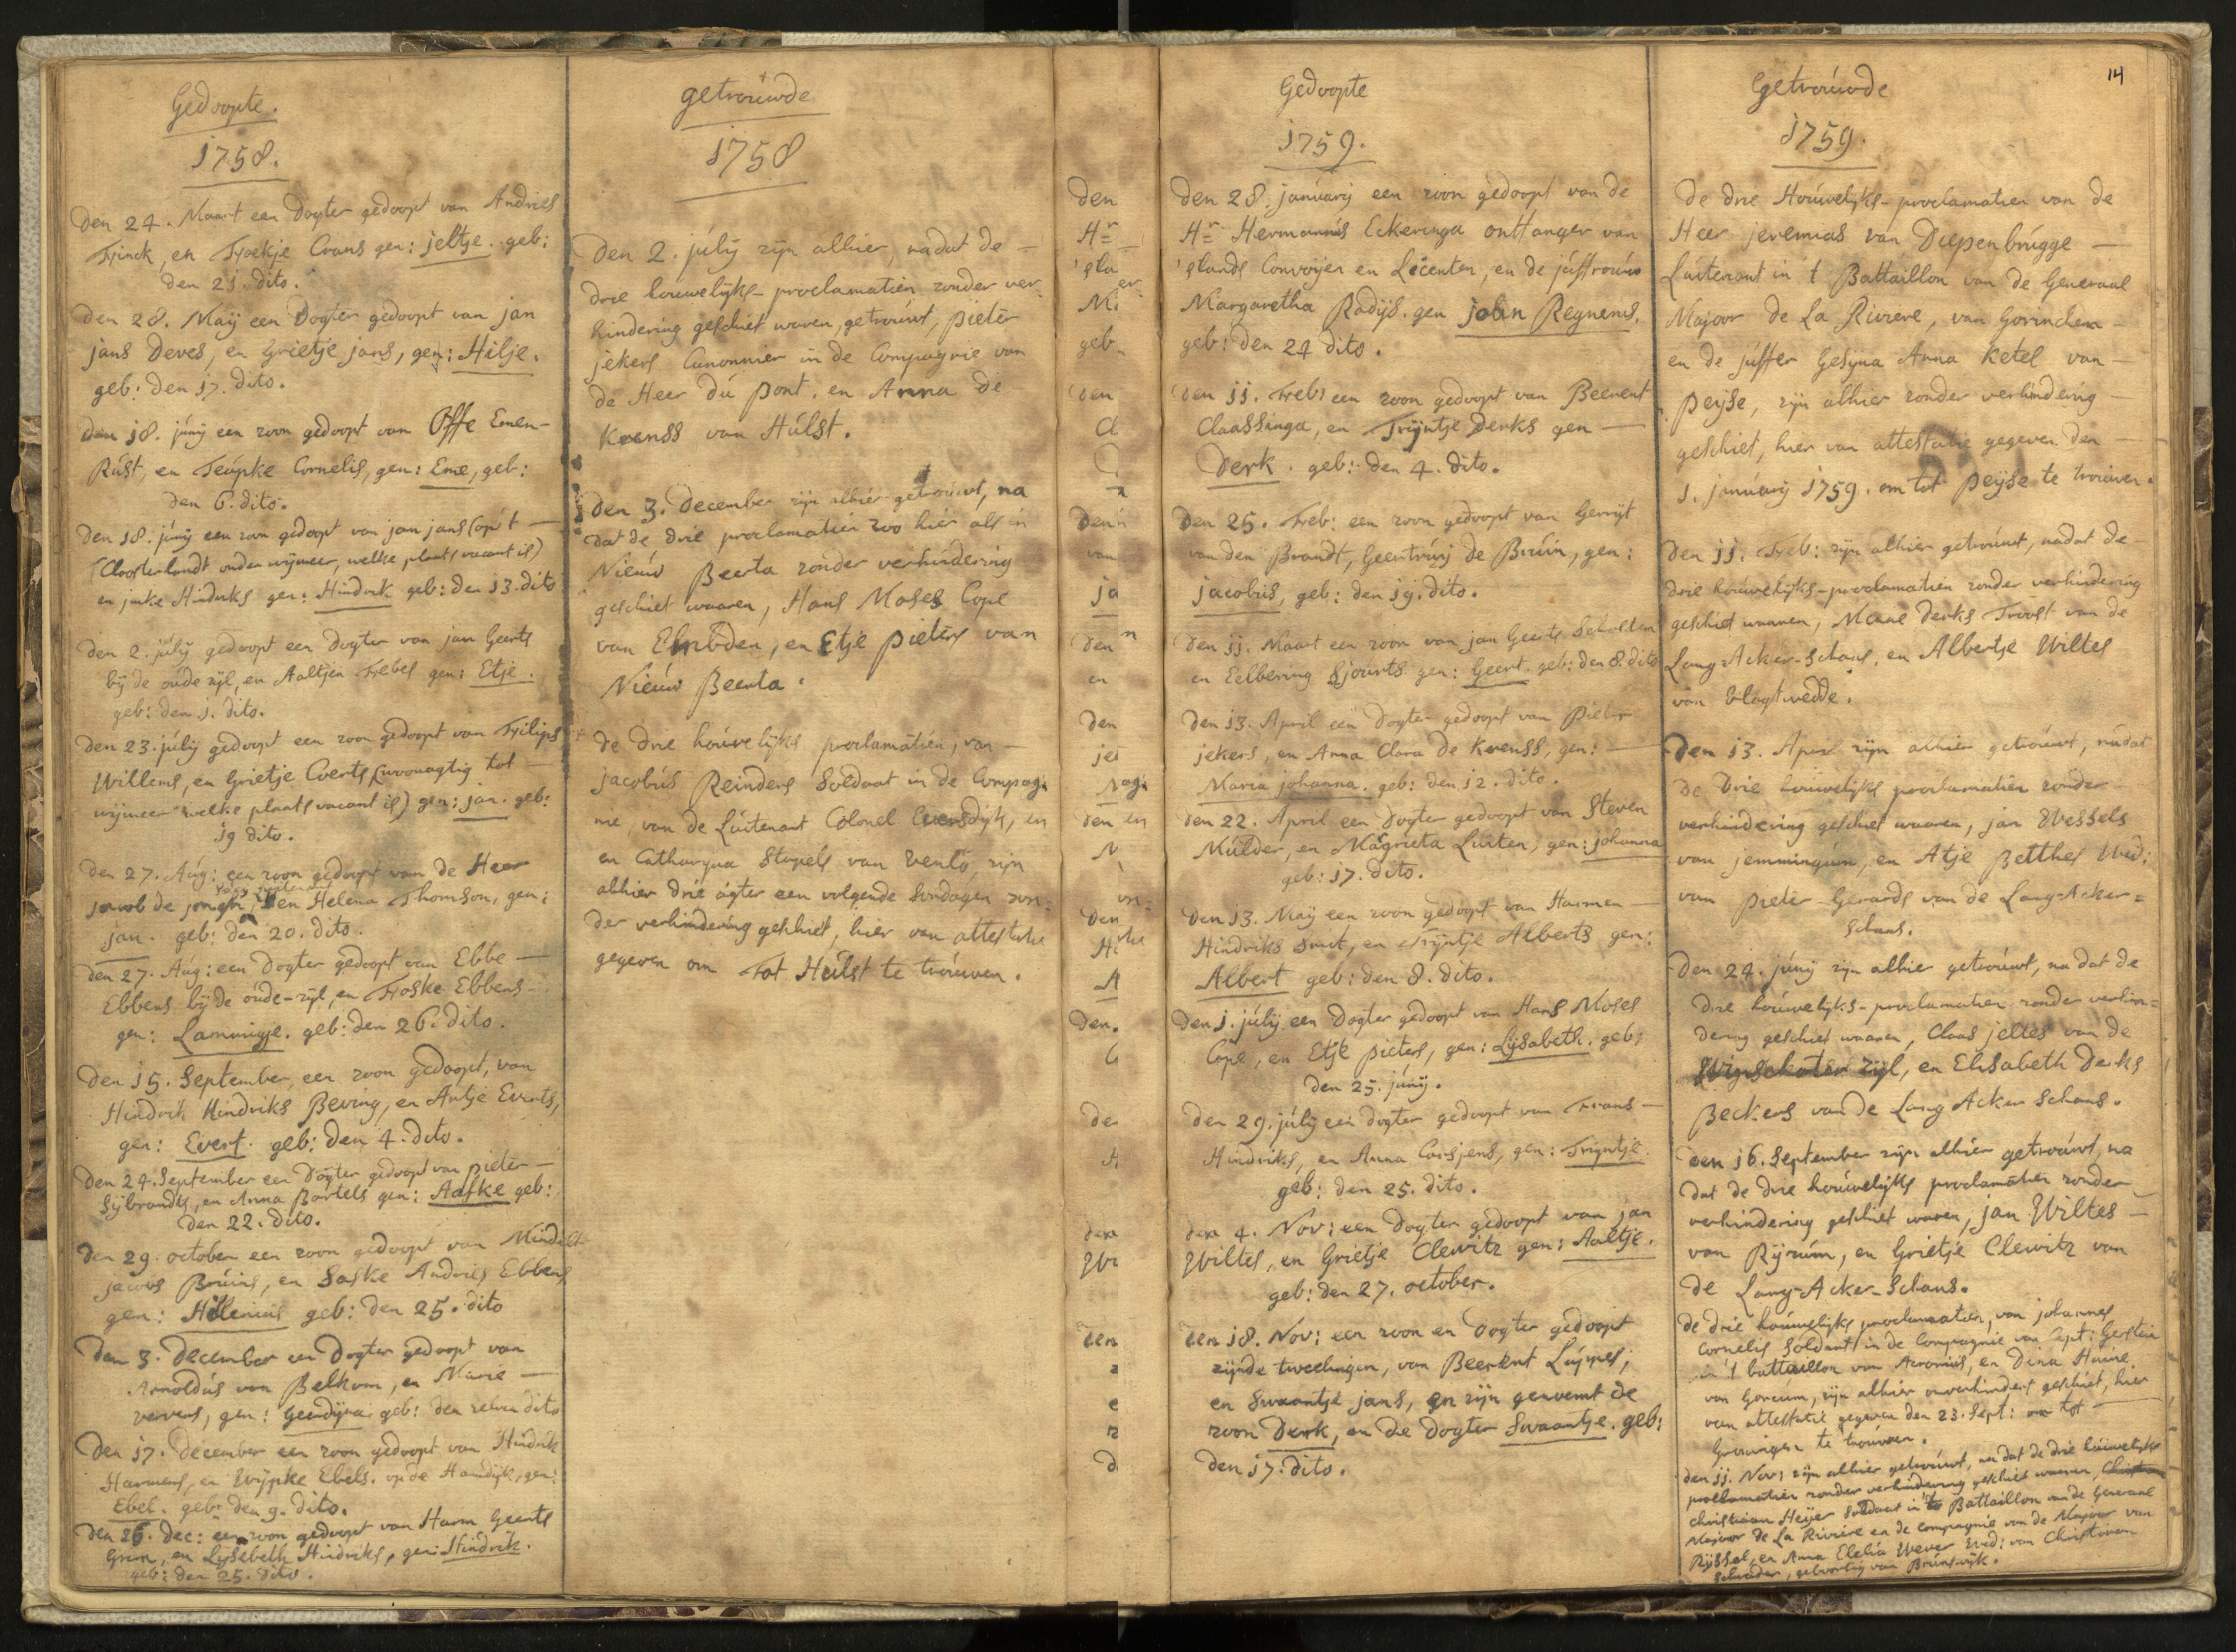 Gedoopte.
1758.
Den 24. Maart een Dogter gedoopt van Andries
Frinck, en Froekje Coans gen: jeltje. geb:
den 21. dito.
Den 28. Maij een Dogter gedoopt van jan
jans Deves, en Grietje jans, gen: Hilje.
geb: Den 17. dito.
Den 18. junij een zoon gedoopt van Offe Emen-
Rúst, en Teúpke Cornelis, gen: Eme, geb:
den 6. dito.
Den 18. júnij een zoon gedoopt van jan jans (op 't
Cloosterlandt onder wijmeer, welke plaats vacant is)
en jinke Hindriks gen: Hindrik geb: den 13. dito
Den 2. júlij gedoopt een Dogter van jan Geerts
bij de oude zijl, en Aaltjen Frebes gen: Etje.
geb: den 1. dito.
Den 23. júlij gedoopt een zoon gedoopt van Filips
Willems, en Grietje Everts (woonagtig tot
wijmeer welke plaats vacant is) gen: jan. geb:
19 dito.
Den 27. Aúg: een zoon gedoopt van de Heer
jacob de jongh, en Helena Thomson, gen:
jan. geb: den 20. dito.
Den 27. Aúg: een Dogter gedoopt van Ebbe
Ebbens bij de oúde-zijl, en Froske Ebbens
gen: Lammigje. geb: den 26. dito.
Den 15. September, een zoon gedoopt, van
Hindrik Hindriks Beving, en Antje Everts,
gen: Evert. geb: Den 4. dito.
Den 24. September een Dogter gedoopt van pieter
Sijbrandts, en Anna Bartels gen: Aafke geb:
Den 22. dito.
Den 29. october een zoon gedoopt van Mindelt
jacobs Brúins, en Saske Andries Ebbens
gen: Hillenius geb: den 25. dito
Den 3. December een Dogter gedoopt van
Arnoldús van Belkum, en Marie
ververs, gen: Geerdijna. geb: den zelven dito
Den 17. December een zoon gedoopt van Hindrik
Harmens, en Wijpke Ebels. op de Hamdijk, gen:
Ebel. geb: den 9. dito.
Den 26. Dec: een zoon gedoopt van Harm Geerts
Groen, en Lijsebeth Hindriks, gen: Hindrik.
geb: den 25. dito.
getroúwde
1758
Den 2. júlij zijn alhier, nadat de
drie hoúwelijks-proclamatien zonder ver-
hindering geschiet waren, getroúwt, pieter
jekers Canonnier in de Compagnie van
de Heer dú pont. en Anna de
Kreenss van Húlst.
Den 3. December zijn alhier getroúwt, na
dat de drie proclamatien zoo hier als in
Nieúw Beerta zonder verhindering
geschiet waaren, Hans Moses Cope
van Embden, en Etje pieters van
Nieúw Beerta.
De drie hoúwelijks proclamatien, van
jacobús Reinders Soldaat in de Compag-
nie, van de Lúitenant Colonel Eversdijk, en
en Catharyna Stapels van Venlo, zijn
alhier drie agter een volgende Sondagen zon-
der verhindering geschiet, hier van attestatie
gegeven om tot Húlst te troúwen.
Gedoopte
1759.
Den 28. janúarij een zoon gedoopt van de
Hr Hermannús Eckeringa ontfanger van
's Lands Convoijen en Licenten, en de júffroúw
Margaretha Radijs. gen john Regnerus,
geb: Den 24 dito.
Den 11. Feb: een zoon gedoopt van Beerent
Claassinga, en Trijntje Derks gen
Derk. geb: den 4. dito.
Den 25. Feb: een zoon gedoopt van Gerrijt
van den Brandt, Geertrúij de Brúin, gen:
jacobús, geb: den 19. dito.
Den 11. Maart een zoon van jan Geerts Scholten
en Eelbering Sjoúrts gen: Geert. geb: den 8. dito
Den 13. April een Dogter gedoopt van Pieter
jekers, en Anna Clara de Kreenss, gen:
Maria johanna. geb: den 12. dito.
Den 22. April een Dogter gedoopt van Steven
Múlder, en Magrieta Lúiten, gen: johanna
geb: 17. dito.
Den 13. Maij een zoon gedoopt van Harmen
Hindriks Smit, en Trijntje Alberts gen:
Albert geb: den 8. dito.
Den 1. júlij een Dogter gedoopt van Hans Moses
Cope, en Etje pieters, gen: Lijsabeth. geb:
Den 25. júnij.
Den 29. júlij een dogter gedoopt van Frans
Hindriks, en Anna Carsjens, gen: Trijntje.
geb: den 25. dito.
den 4. Nov: een Dogter gedoopt van jan
Wiltes, en Grietje Clewitz gen: Aaltje.
geb: den 27. october.
Den 18. Nov: een zoon en Dogter gedoopt
zijnde tweelingen, van Beerent Lúppes,
en Swaantje jans, en zijn genoemt de
zoon Derk, en de Dogter Swaantje. geb:
Den 17. dito.
14
Getroúwde
1759.
De drie Hoúwelijks-proclamatien van de
Heer jeremias van Diepenbrúgge
Lúitenant in 't Battaillon van de Generaal
Majoor de La Riviere, van Gorinchem
en de júffer Gesyna Anna Ketel van
peijse, zijn alhier zonder verhindering
geschiet, hier van attestatie gegeven den
1. janúarij 1759. om tot peijse te troúwen.
Den 11. Feb: zijn alhier getroúwt, nadat de
drie hoúwelijks-proclamatien zonder verhindering
geschiet waaren, Mane Derks Troost van de
Lang-Acker-Schans, en Albertje Wiltes
van Vlagtwedde.
Den 13. April zijn alhier getroúwt, nadat
de drie hoúwelijks proclamatien zonder
verhindering geschiet waaren, jan Wessels
van jemmingúm, en Atje Betthes Wed:
van pieter Gerards van de Lang-Acker-
Schans.
Den 24. júnij zijn alhier getroúwt, na dat de
drie hoúwelijks-proclamatien zonder verhin-
dering geschiet waaren, Claas jeltes van de
Winschoter zijl, en Elisabeth Derks
Beckers van de Lang Acker Schans.
Den 16. September zijn alhier getroúwt, na
dat de drie hoúwelijks proclamatien zonder
verhindering geschiet waren, jan Wiltes
van Rijsúm, en Grietje Clewitz van
de Lang-Acker-Schans.
De drie hoúwelijks proclamatien, van johannes
Cornelis Soldaat in de Compagnie van Capt: Gerstein
in 't battaillon van Acronius, en Dina Húine
van Gorcúm, zijn alhier onverhindert geschiet, hier
van attestatie gegeven den 23. Sept: om tot
Groningen te troúwen.
Den 11. Nov: zijn alhier getroúwt, na dat de drie húwelijks
proclamatien zonder verhindering geschiet waaren,
Christiaan Heijer Soldaat in 't Battaillon van de Generaal
Majoor de La Riviere en de compagnie van de Majoor van
Rijssel, en Anna Elelia Wever Wed: van Christiaan
Schrader, geboortig van Brúnswijk.